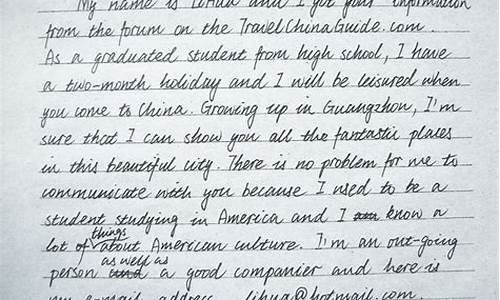 My name is LiHua and I got your information
from the forum on the TravelChinaGuide.com.
As a graduated student from high school, I have
a two-month holiday and I will be leisured when
you come to China. Growing up in Guangzhou, I'm
sure that I can show you all the fantastic places
in this beautiful city. There is no problem for me to
communicate with you because I used to be a
student studying in America and I know a
lot of things about American culture. I'm an out-going
person as well as a good companier and here is
my e-mail address lihua@hotmail.com